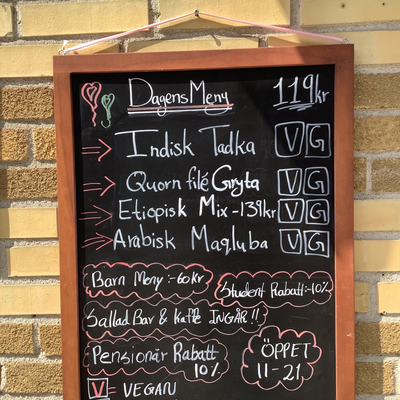 Dagens Meny 119kr
Indisk Tadka V G
Quorn filé Gryta V G
Etiopisk Mix - 139kr V G
Arabisk Maqluba V G
Barn Meny :- 60 kr
Student Rabatt :- 10%
Sallad Bar & Kaffe INGÅR !!
Pensionär Rabatt 10%
ÖPPET 11-21
V = VEGAN